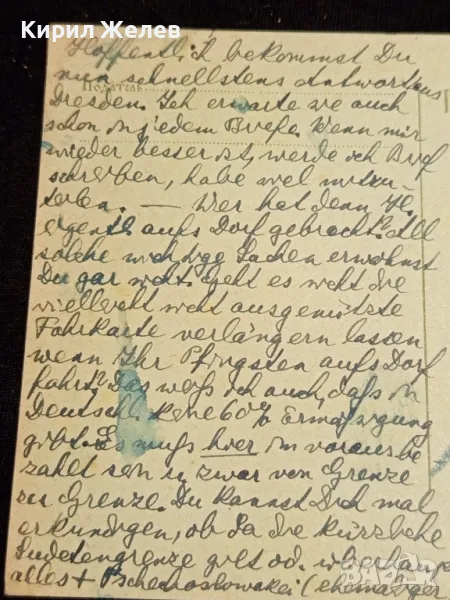 Кирил Желев
Hoffentlich bekommst Du
nun schnellstens Antwort aus
Податель
Dresden. Ich erwarte sie auch
schon in jedem Briefe. Wenn mir
wieder besser ist, werde ich Brief
schreiben, habe viel mitzu-
teilen. — Wer hat denn H.
eigentl. aufs Dorf gebracht? All
solche wichtige Sachen erwähnst
Du gar nicht. Geht es nicht die
vielleicht nicht ausgenützte
Fahrkarte verlängern lassen
wenn Ihr Pfingsten aufs Dorf
fahrt? Das weiß ich auch, daß in
Deutschl. keine 60% Ermäßigung
gibt. Es muß hier im voraus be
zahlt sein u. zwar von Grenze
zu Grenze. Du kannst Dich mal
erkundigen, ob da die kürzliche
Sudetengrenze gilt od. überhaupt
alles + Tschechoslowakei (ehemaliger